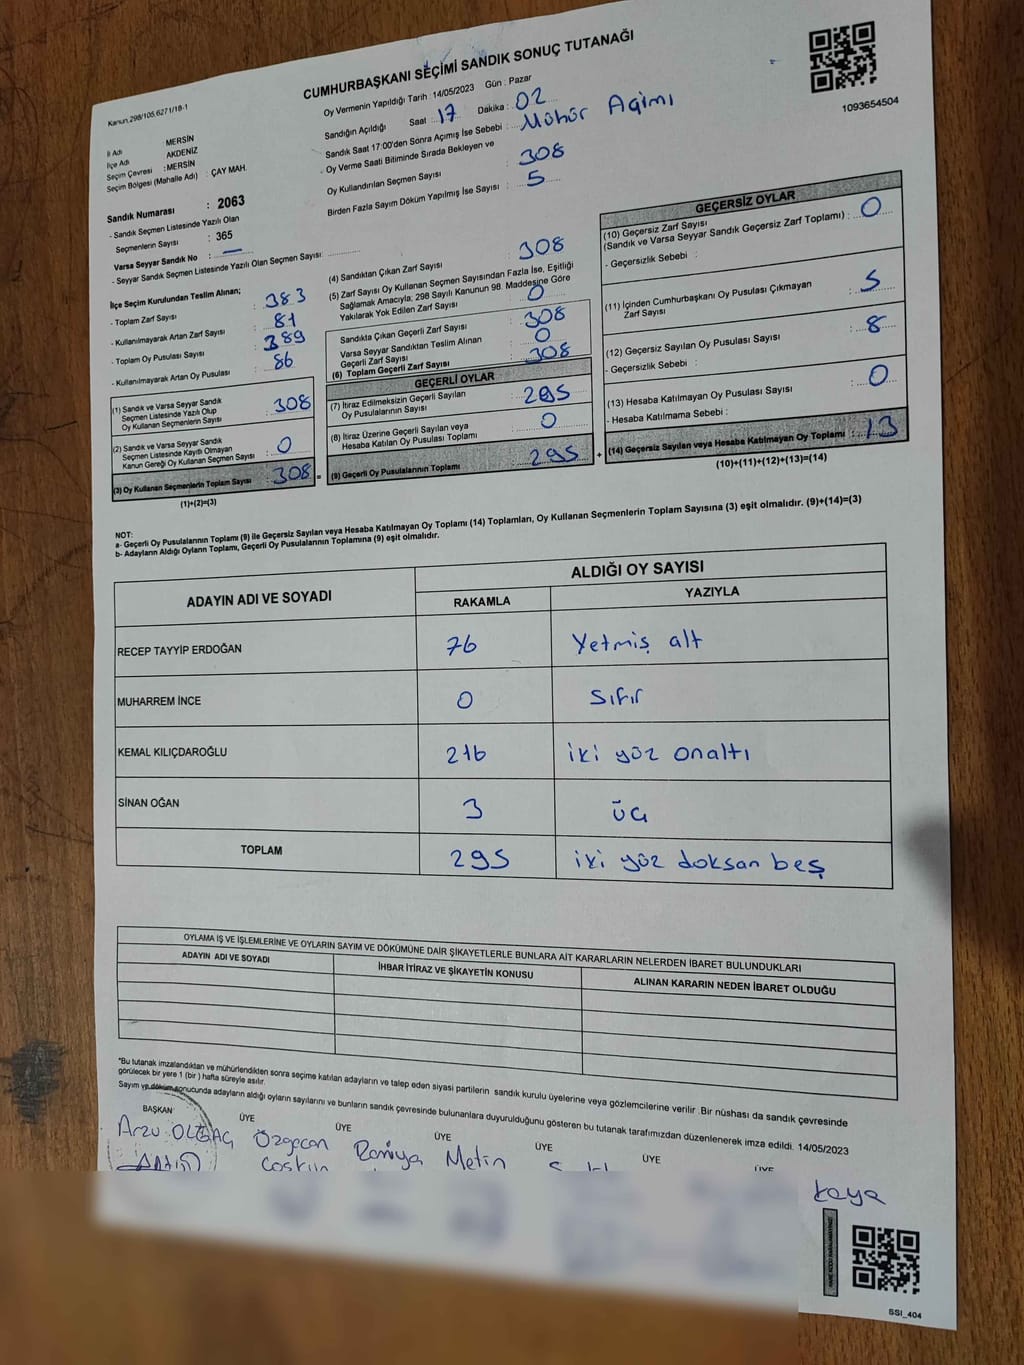 CUMHURBAŞKANI SEÇİMİ SANDIK SONUÇ TUTANAĞI
Kanun.298/105,6271/18-1
Oy Vermenin Yapıldığı Tarih : 14/05/2023 Gün : Pazar
Sandığın Açıldığı Saat : 17 Dakika : 02
Sandık Saat 17:00'den Sonra Açımış İse Sebebi : Mühür Açimı
1093654504
İl Adı MERSİN
İlçe Adı AKDENİZ
Seçim Çevresi : MERSİN
Seçim Bölgesi (Mahalle Adı) : ÇAY MAH.
Oy Verme Saati Bitiminde Sırada Bekleyen ve
Oy Kullandırılan Seçmen Sayısı : 308
Birden Fazla Sayım Döküm Yapılmış İse Sayısı : 5
Sandık Numarası : 2063
- Sandık Seçmen Listesinde Yazılı Olan
Seçmenlerin Sayısı : 365
Varsa Seyyar Sandık No : —
- Seyyar Sandık Seçmen Listesinde Yazılı Olan Seçmen Sayısı:
İlçe Seçim Kurulundan Teslim Alınan;
- Toplam Zarf Sayısı : 383
- Kullanılmayarak Artan Zarf Sayısı : 81
- Toplam Oy Pusulası Sayısı : 389
- Kullanılmayarak Artan Oy Pusulası : 86
(1) Sandık ve Varsa Seyyar Sandık
Seçmen Listesinde Yazılı Olup
Oy Kullanan Seçmenlerin Sayısı : 308
(2) Sandık ve Varsa Seyyar Sandık
Seçmen Listesinde Kayıtlı Olmayan
Kanun Gereği Oy Kullanan Seçmen Sayısı : 0
(3) Oy Kullanan Seçmenlerin Toplam Sayısı : 308
(1)+(2)=(3)
(4) Sandıktan Çıkan Zarf Sayısı : 308
(5) Zarf Sayısı Oy Kullanan Seçmen Sayısından Fazla İse, Eşitliği
Sağlamak Amacıyla, 298 Sayılı Kanunun 98. Maddesine Göre
Yakılarak Yok Edilen Zarf Sayısı : 0
Sandıkta Çıkan Geçerli Zarf Sayısı : 308
Varsa Seyyar Sandıktan Teslim Alınan
Geçerli Zarf Sayısı : 0
(6) Toplam Geçerli Zarf Sayısı : 308
GEÇERLİ OYLAR
(7) İtiraz Edilmeksizin Geçerli Sayılan
Oy Pusulalarının Sayısı : 295
(8) İtiraz Üzerine Geçerli Sayılan veya
Hesaba Katılan Oy Pusulası Toplamı : 0
(9) Geçerli Oy Pusulalarının Toplamı : 295
GEÇERSİZ OYLAR
(10) Geçersiz Zarf Sayısı
(Sandık ve Varsa Seyyar Sandık Geçersiz Zarf Toplamı) : 0
- Geçersizlik Sebebi :
(11) İçinden Cumhurbaşkanı Oy Pusulası Çıkmayan
Zarf Sayısı : 5
(12) Geçersiz Sayılan Oy Pusulası Sayısı : 8
- Geçersizlik Sebebi :
(13) Hesaba Katılmayan Oy Pusulası Sayısı : 0
- Hesaba Katılmama Sebebi :
(14) Geçersiz Sayılan veya Hesaba Katılmayan Oy Toplamı : 13
(10)+(11)+(12)+(13)=(14)
NOT:
a- Geçerli Oy Pusulalarının Toplamı (9) ile Geçersiz Sayılan veya Hesaba Katılmayan Oy Toplamı (14) Toplamları, Oy Kullanan Seçmenlerin Toplam Sayısına (3) eşit olmalıdır. (9)+(14)=(3)
b- Adayların Aldığı Oyların Toplamı, Geçerli Oy Pusulalarının Toplamına (9) eşit olmalıdır.
ADAYIN ADI VE SOYADI ALDIĞI OY SAYISI
RAKAMLA YAZIYLA
RECEP TAYYİP ERDOĞAN 76 Yetmiş alt
MUHARREM İNCE 0 Sıfır
KEMAL KILIÇDAROĞLU 216 iki yüz onaltı
SİNAN OĞAN 3 üç
TOPLAM 295 iki yüz doksan beş
OYLAMA İŞ VE İŞLEMLERİNE VE OYLARIN SAYIM VE DÖKÜMÜNE DAİR ŞİKAYETLERLE BUNLARA AİT KARARLARIN NELERDEN İBARET BULUNDUKLARI
ADAYIN ADI VE SOYADI İHBAR İTİRAZ VE ŞİKAYETİN KONUSU ALINAN KARARIN NEDEN İBARET OLDUĞU
*Bu tutanak imzalandıktan ve mühürlendikten sonra seçime katılan adayların ve talep eden siyasi partilerin sandık kurulu üyelerine veya gözlemcilerine verilir. Bir nüshası da sandık çevresinde
görülecek bir yere 1 (bir) hafta süreyle asılır.
Sayım ve döküm sonucunda adayların aldığı oyların sayılarını ve bunların sandık çevresinde bulunanlara duyurulduğunu gösteren bu tutanak tarafımızdan düzenlenerek imza edildi. 14/05/2023
BAŞKAN ÜYE ÜYE ÜYE ÜYE ÜYE ÜYE
Arzu OLĞAÇ Özgecan Raniya Metin
Coskun
kaya
SSI_404